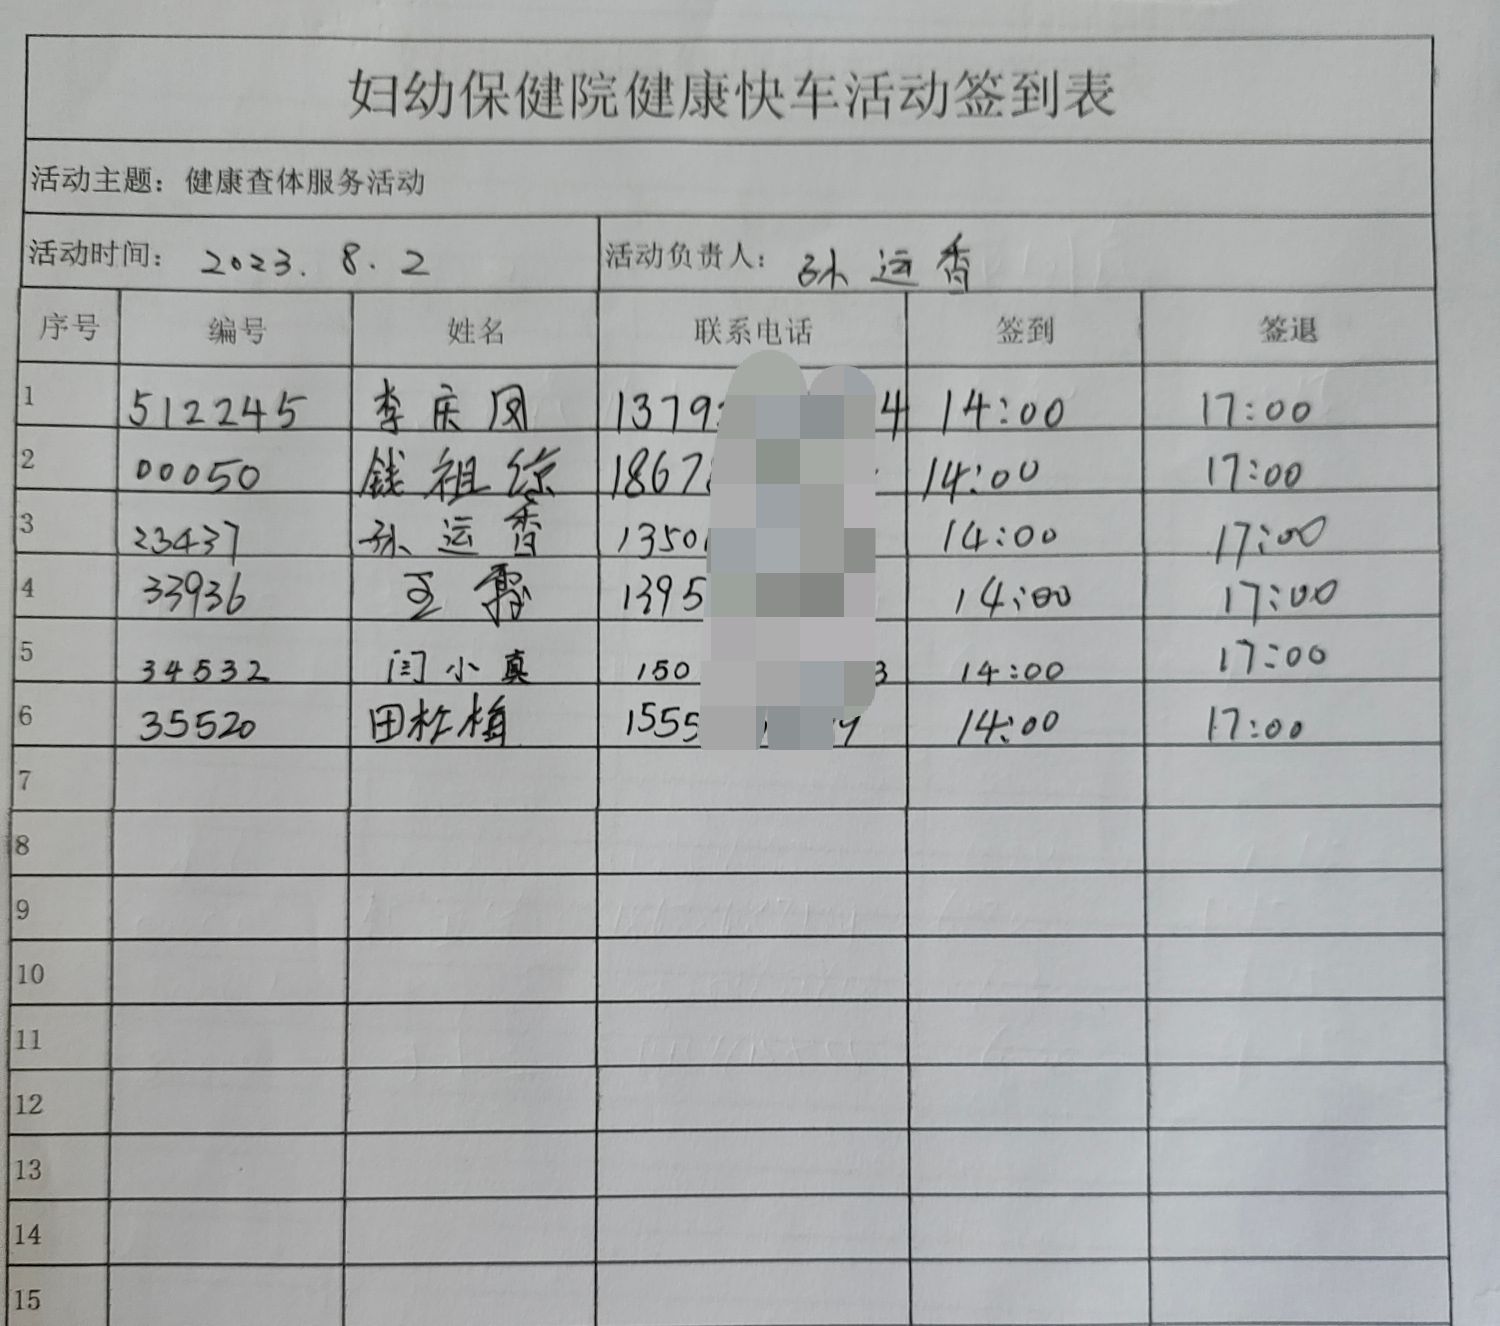 妇幼保健院健康快车活动签到表
活动主题：健康查体服务活动
活动时间：2023.8.2 活动负责人：孙运香
序号 编号 姓名 联系电话 签到 签退
1 512245 李庆凤 1379 4 14:00 17:00
2 00050 钱祖琼 1867 14:00 17:00
3 23437 孙运香 1350 14:00 17:00
4 33936 王霞 1395 14:00 17:00
5 34532 闫小真 150 3 14:00 17:00
6 35520 田松梅 1555 14:00 17:00
7
8
9
10
11
12
13
14
15